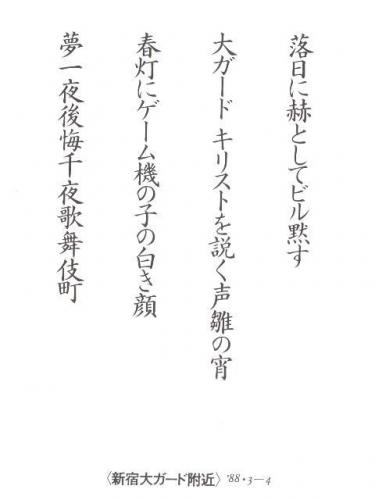 落日に赫としてビル黙す
大ガード キリストを説く声雛の宵
春灯にゲーム機の子の白き顔
夢一夜後悔千夜歌舞伎町
〈新宿大ガード附近〉 '88・3―4